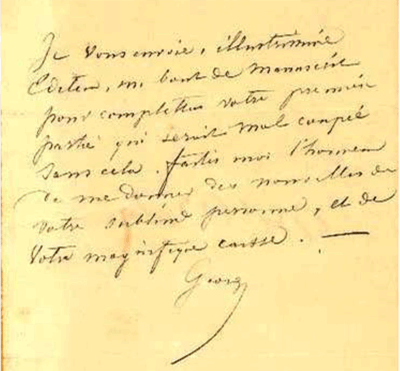 Je vous envoie, illustrissime
Editeu, un bout de manuscrit
pour completter votre première
partie qui serait mal coupée
sans cela. Faites moi l'honneur
de me donner des nouvelles de
votre sublime personne, et de
votre magnifique caisse. —
George